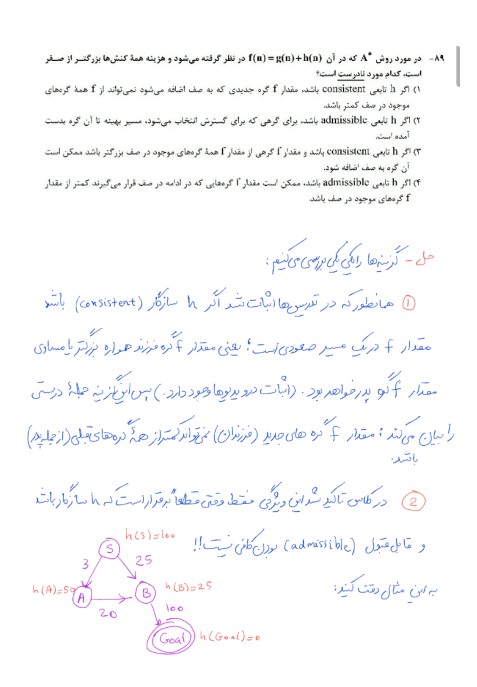 ۸۹- در مورد روش A* که در آن f(n) = g(n)+h(n) در نظر گرفته می‌شود و هزینه همهٔ کنش‌ها بزرگتر از صفر
است، کدام مورد نادرست است؟
۱) اگر h تابعی consistent باشد، مقدار f گره جدیدی که به صف اضافه می‌شود نمی‌تواند از f همهٔ گره‌های
موجود در صف کمتر باشد.
۲) اگر h تابعی admissible باشد، برای گرهی که برای گسترش انتخاب می‌شود، مسیر بهینه تا آن گره بدست
آمده است.
۳) اگر h تابعی consistent باشد و مقدار f گرهی از مقدار f همهٔ گره‌های موجود در صف بزرگتر باشد ممکن است
آن گره به صف اضافه شود.
۴) اگر h تابعی admissible باشد، ممکن است مقدار f گره‌هایی که در ادامه در صف قرار می‌گیرند کمتر از مقدار
f گره‌های موجود در صف باشد.
حل - گزینه‌ها را یکی یکی بررسی می‌کنیم:
① همانطور که در تدریس‌ها اثبات شد اگر h سازگار (consistent) باشد
مقدار f در یک مسیر صعودی است؛ یعنی مقدار f گره فرزند همواره بزرگتر یا مساوی
مقدار f گره پدر خواهد بود. (اثبات در ویدیوها وجود دارد.) پس این گزینه جملهٔ درستی
را بیان می‌کند؛ مقدار f گره های جدید (فرزندان) نمی‌تواند کمتر از همهٔ گره‌های قبلی (از جمله پدر)
باشد.
② در کلاس تاکید شد این ویژگی فقط وقتی قطعاً برقرار است که h سازگار باشد
و قابل قبول (admissible) بودن کافی نیست!!
به این مثال دقت کنید:
h(S)=100
S
3
25
h(A)=50
A
B
h(B)=25
20
100
Goal
h(Goal)=0